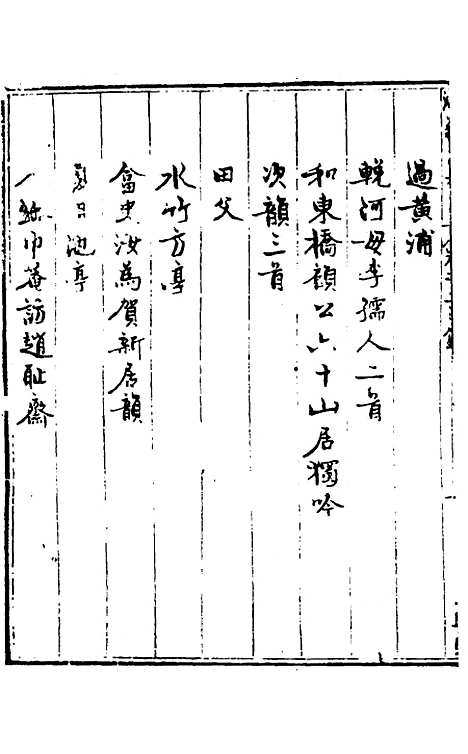 過黃浦
輓河母李孺人二首
和東橋顧公六十山居獨吟
次韻三首
田父
水竹方亭
畣史汝為賀新居韻
夏日池亭
紗巾菴訪趙耻齋